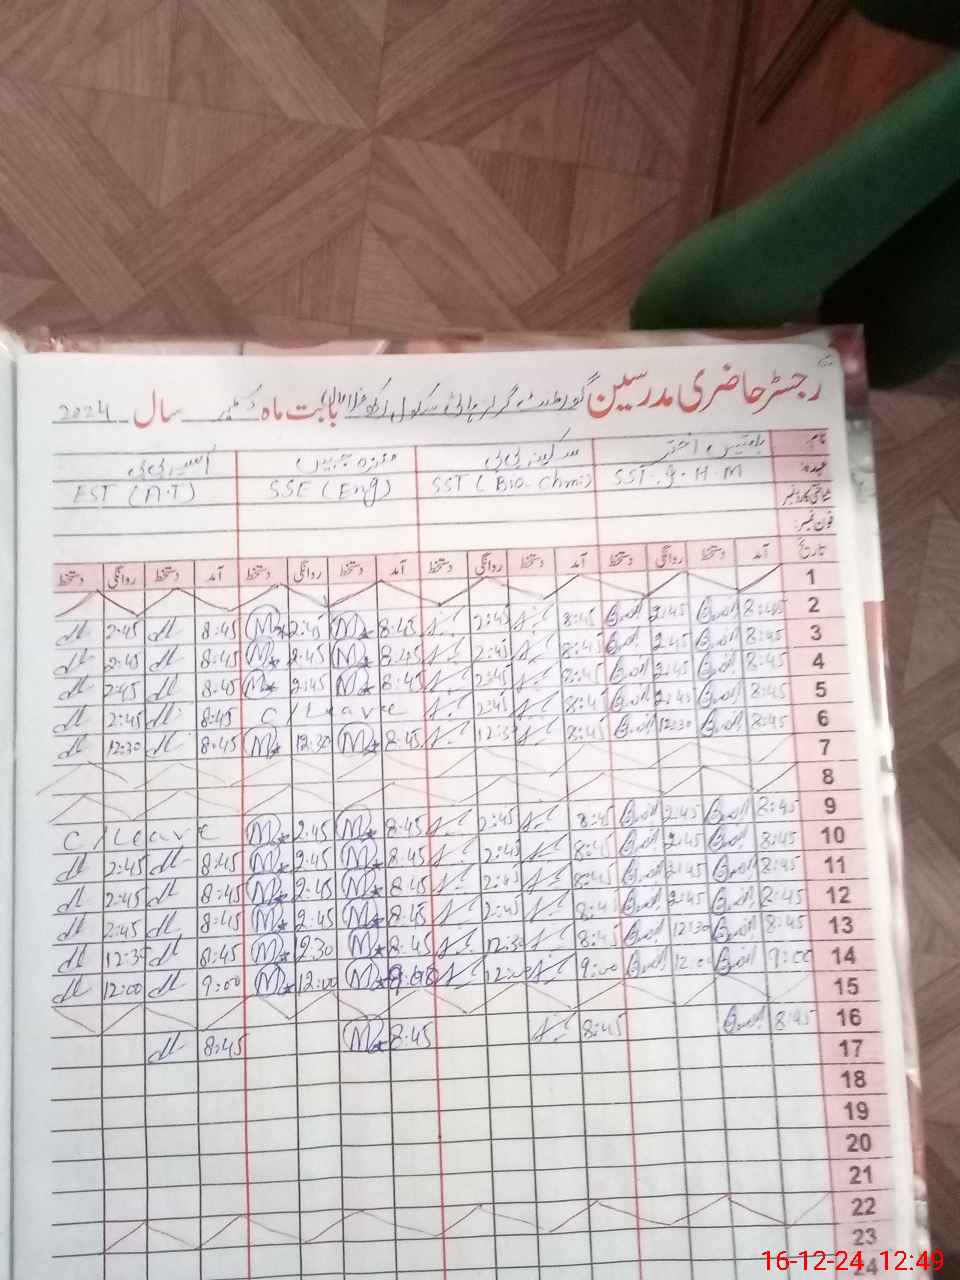 رجسٹر حاضری مدرسین گورنمنٹ گرلز ہائی سکول بابت ماہ دسمبر سال 2024
نام: بلقیس اختر سکینہ بی بی منزہ جبیں آسیہ بی بی
عہدہ: SST. g. H. M SST (Bio-Chmi) SSE (Eng) EST (A.T)
شناختی کارڈ نمبر
فون نمبر:
تاریخ آمد دستخط روانگی دستخط آمد دستخط روانگی دستخط آمد دستخط روانگی دستخط آمد دستخط روانگی دستخط
1
2 8:45 2:45 8:45 2:45 8:45 2:45 8:45 2:45
3 8:45 2:45 8:45 2:45 8:45 2:45 8:45 2:45
4 8:45 2:45 8:45 2:45 8:45 2:45 8:45 2:45
5 8:45 2:45 8:45 2:45 C/Leave 8:45 2:45
6 8:45 12:30 8:45 12:30 8:45 12:30 8:45 12:30
7
8
9 8:45 2:45 8:45 2:45 8:45 2:45 C/Leave
10 8:45 2:45 8:45 2:45 8:45 2:45 8:45 2:45
11 8:45 2:45 8:45 2:45 8:45 2:45 8:45 2:45
12 8:45 2:45 8:45 2:45 8:45 2:45 8:45 2:45
13 8:45 12:30 8:45 12:30 8:45 2:30 8:45 12:30
14 9:00 12:00 9:00 12:00 12:00 9:00 12:00
15
16 8:45 8:45 8:45 8:45
17
18
19
20
21
22
23
24
16-12-24 12:49